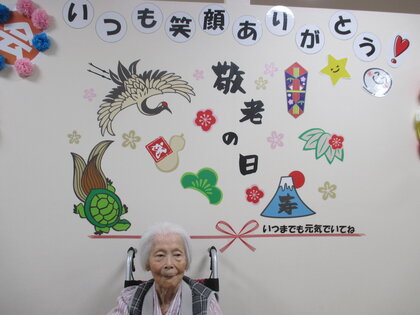 いつも笑顔ありがとう!
敬老の日
祝
寿
いつまでも元気でいてね